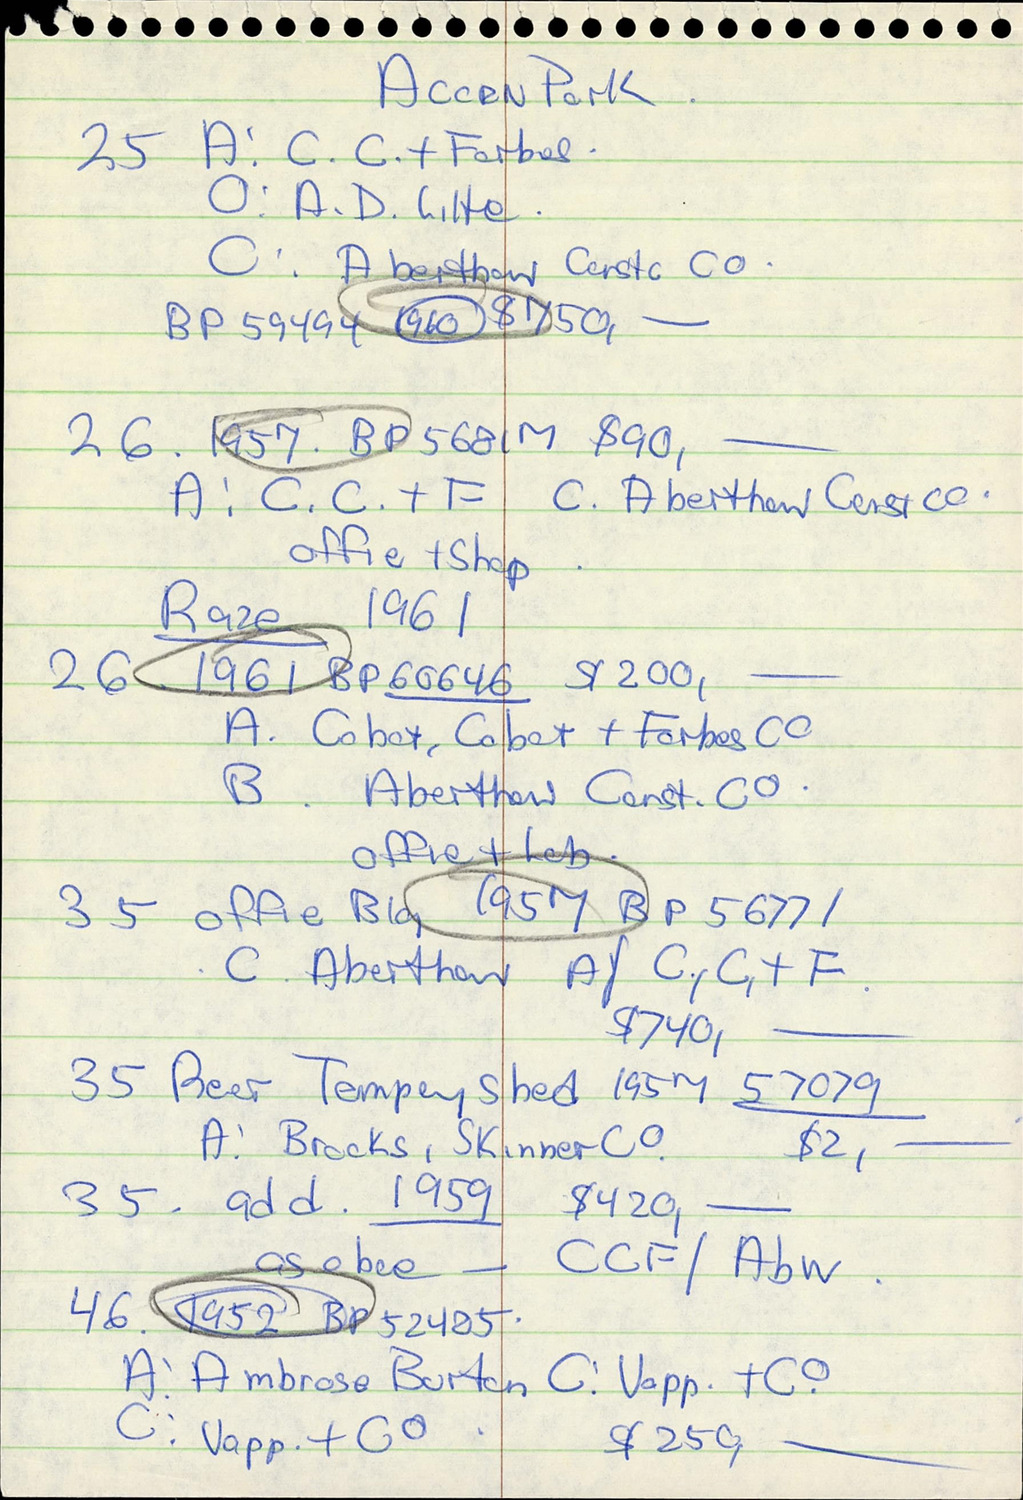 Accrn Park.
25 A: C. C. + Forbes.
O: A. D. Little.
C: Aberthaw Constc CO.
BP 59494 1960 $750, —
26. 1957. BP 56817 $90, —
A: C. C. + F C. Aberthaw Const CO.
offie + Shop.
Raze 1961
26 1961 BP 60646 $200, —
A. Cabot, Cabot + Forbes CO
B. Aberthaw Const. CO.
offie + Lab.
35 offie Bldg 1957 BP 56771
C. Aberthaw A/ C, C, + F.
$740, —
35 Rear Tempery Shed 1957 57079
A: Brocks, Skinner CO. $2, —
35. add. 1959 $420, —
as abee — CCF/ Abw.
46. 1952 BP 52485.
A: Ambrose Burton C: Vapp. + CO
C: Vapp. + CO. $250, —